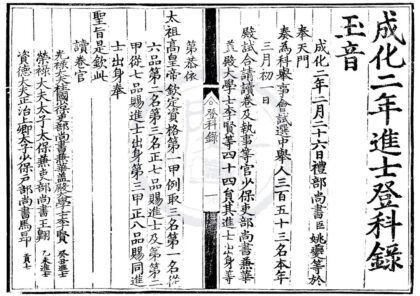 成化二年進士登科錄
玉音
成化二年二月二十六日禮部尚書臣姚夔等於
奉天門
奏為科舉事會試選中舉人三百五十三名本年
三月初一日
殿試合請讀卷及執事等官少保吏部尚書兼華
蓋殿大學士李賢等四十四員其進士出身等
第恭依
太祖高皇帝欽定資格第一甲例取三名第一名從
六品第二名第三名正七品賜進士及第第二
甲從七品賜進士出身第三甲正八品賜同進
士出身奉
聖旨是欽此
讀卷官
光祿大夫柱國少保吏部尚書兼華蓋殿大學士李賢 癸丑進士
榮祿大夫太子太保兼吏部尚書王翱 乙未進士
資德大夫正治上卿太子少保戶部尚書馬昂 貢士
登科錄